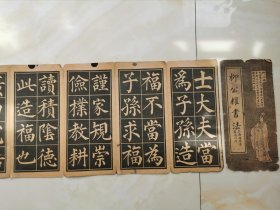 柳公權書法
士大夫當
為子孫造
福不當為
子孫求福
謹家規崇
儉樸教耕
讀積陰德
此造福也